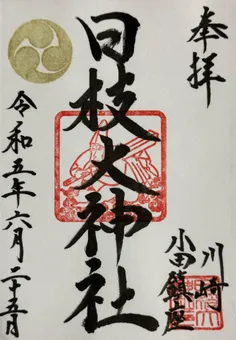 奉拝
川崎
小田鎮座
日枝大神社
令和五年六月二十五日